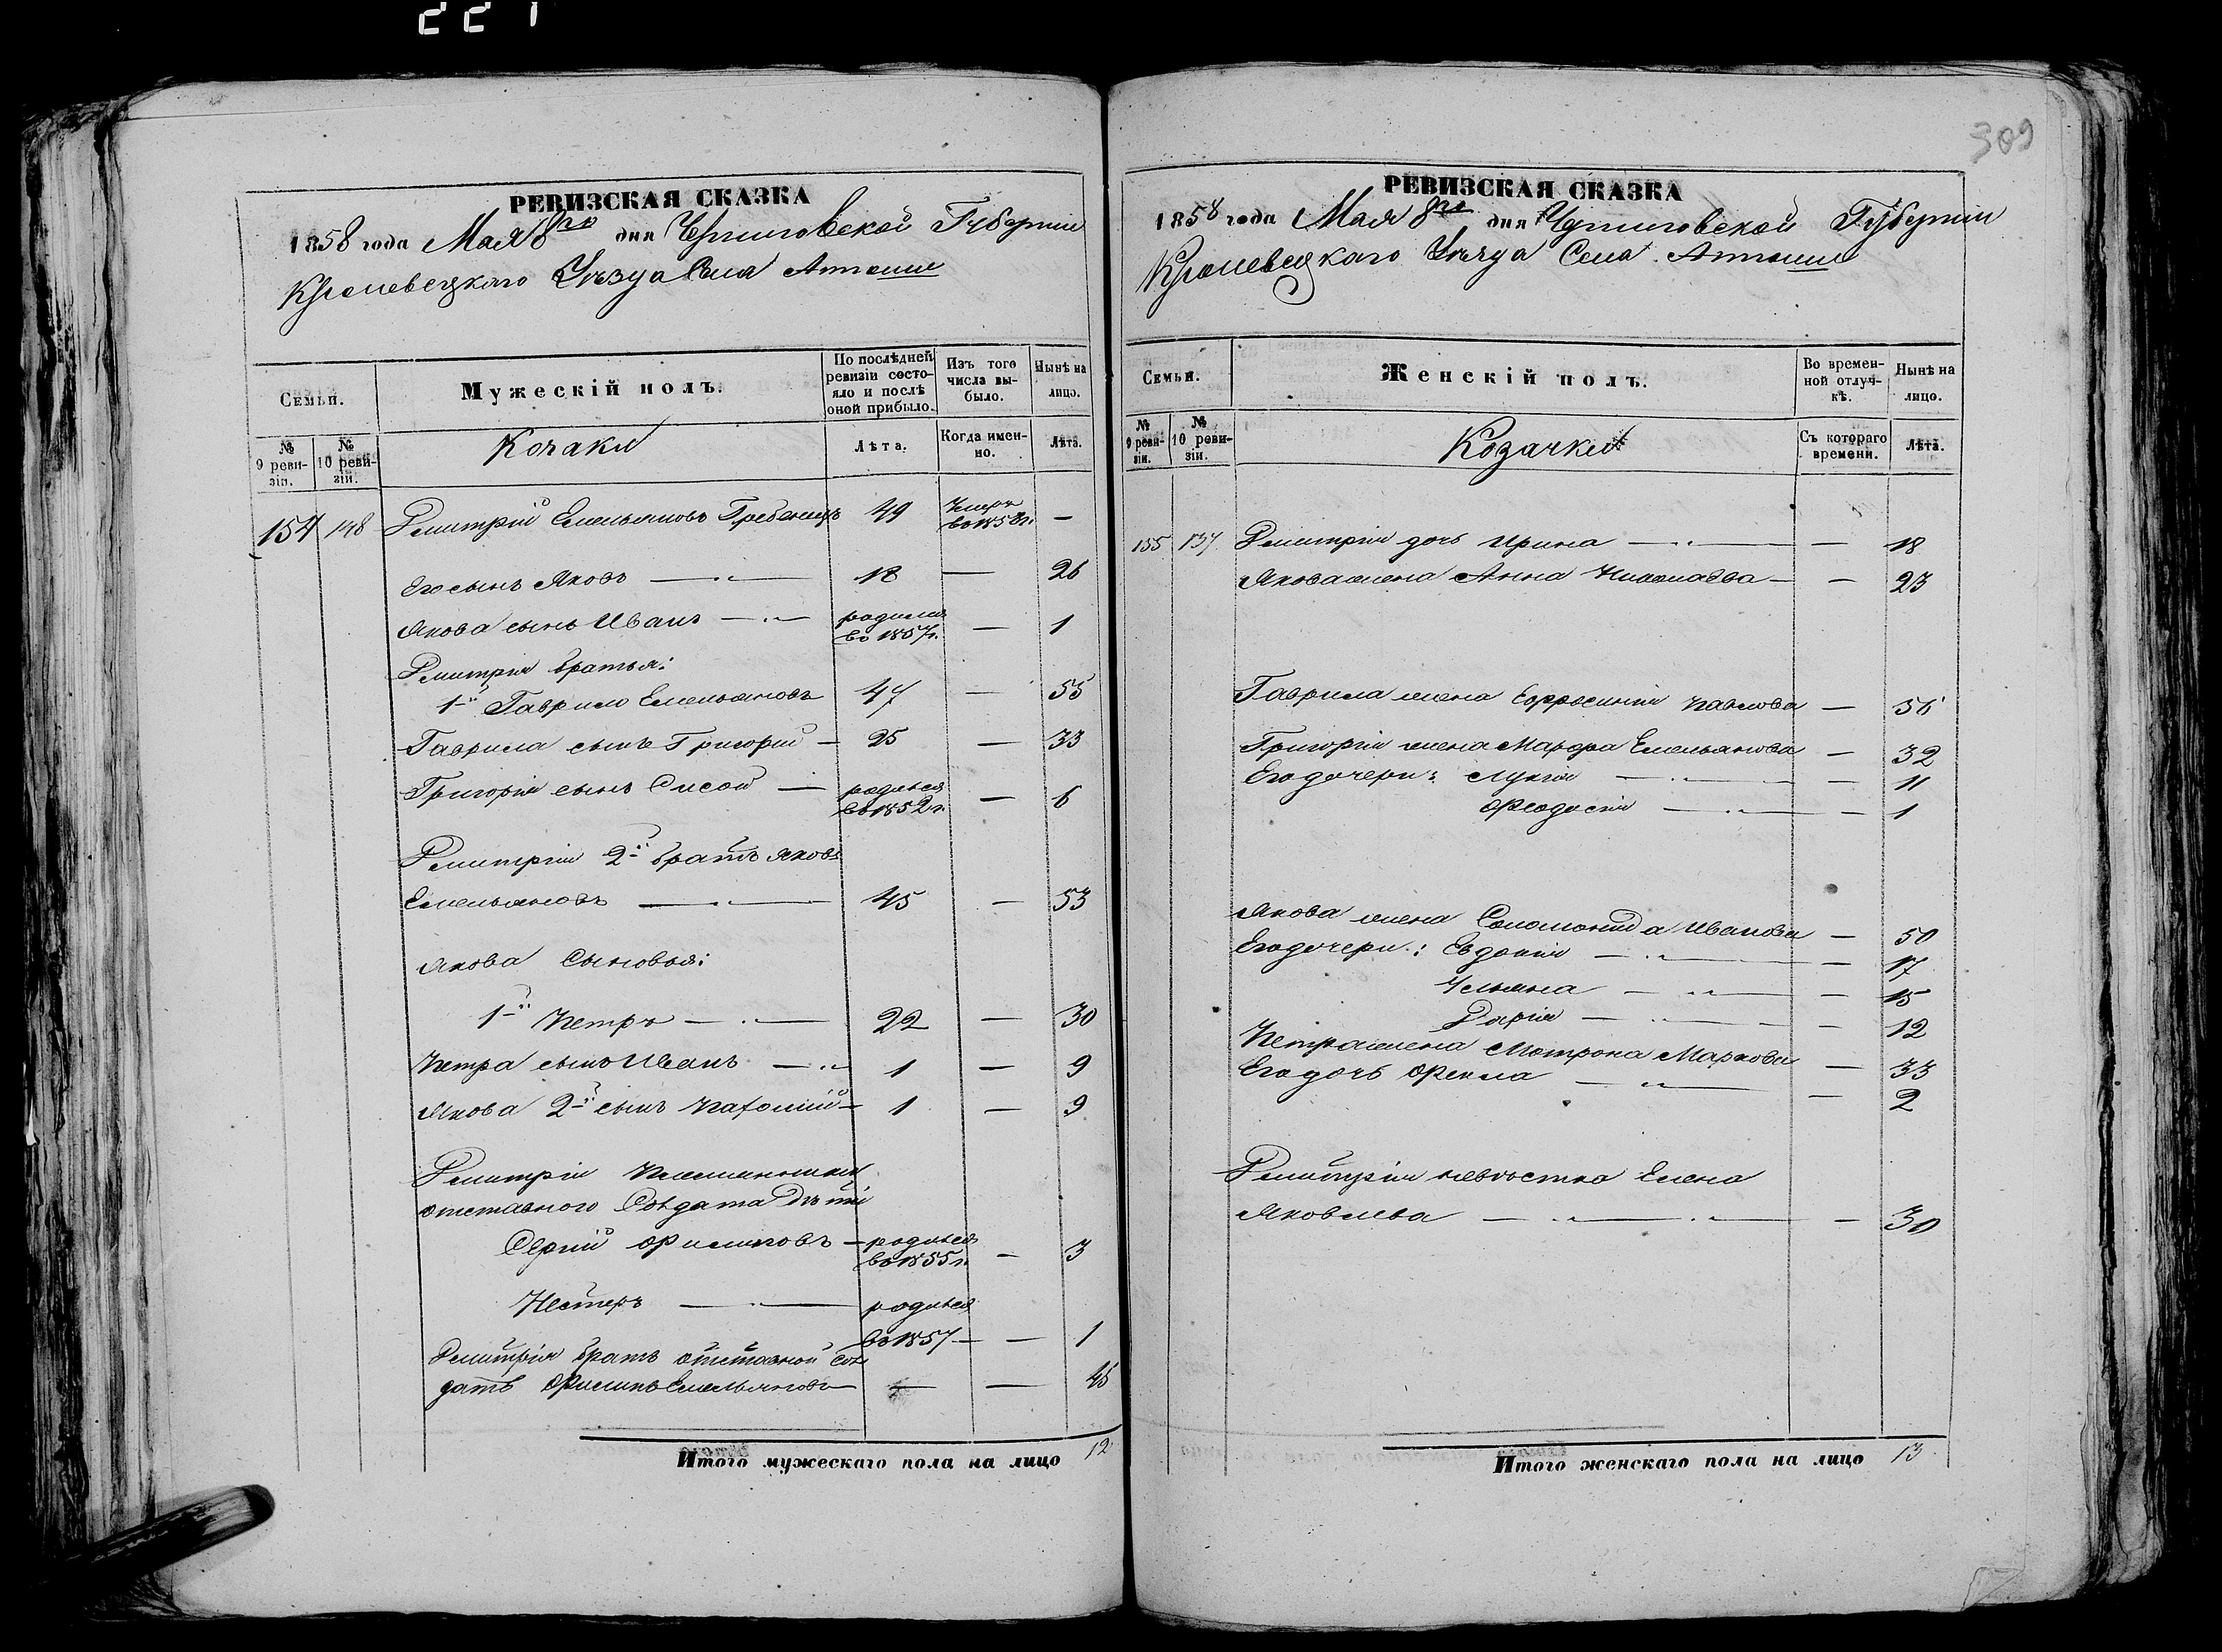 221
РЕВИЗСКАЯ СКАЗКА
1858 года Мая 8го дня Черниговской Губерніи
Кролевецкаго Уѣзда Села
Семьи.
Мужескій полъ.
По послѣдней ревизіи состояло и послѣ оной прибыло.
Изъ того числа выбыло.
Нынѣ на лицо.
№ 9 ревизіи.
№ 10 ревизіи.
Козаки
Лѣта.
Когда именно.
Лѣта.
154 148 Дмитрій Емельяновъ 49 Умеръ въ 1858 г. —
Его сынъ Яковъ — 18 — 26
Якова сынъ Иванъ — родился въ 1857 г. — 1
Дмитрія братья:
1й Гаврило Емельяновъ 47 — 55
Гаврила сынъ Григорій — 25 — 33
Григорія сынъ Сисой — родился въ 1852 г. — 6
Дмитрія 2й братъ Яковъ
Емельяновъ — 45 — 53
Якова Сыновья:
1й Петръ — 22 — 30
Петра сынъ Иванъ — 1 — 9
Якова 2й сынъ Пахомій — 1 — 9
Дмитрія Племянники
отставного Солдата Дѣти
Сергій Филиповъ — родился въ 1855 г. — 3
Несторъ — родился
въ 1857 — — 1
Дмитрія братъ отставной Сол
датъ Филипъ Емельяновъ — — — 45
Итого мужескаго пола на лицо 12
309
РЕВИЗСКАЯ СКАЗКА
1858 года Мая 8го дня Черниговской Губерніи
Кролевецкаго Уѣзда Села
Семьи.
Женскій полъ.
Во временной отлучкѣ.
Нынѣ на лицо.
№ 9 ревизіи.
№ 10 ревизіи.
Козачки
Съ котораго времени.
Лѣта.
155 137 Дмитрія дочь Ирина — — 18
Якова жена Анна — — 23
Гаврила жена Ефросинія Павлова — 56
Григорія жена Марфа Емельянова — 32
Его дочери: Лукія — — 11
Феодосія — — 1
Якова жена Соломонида Иванова — 50
Его дочери: Евдокія — — 17
Ульяна — — 15
Дарія — — 12
Петра жена Мотрона Маркова — 33
Его дочь Фекла — — 2
Дмитрія невѣстка Елена
Яковлева — — 30
Итого женскаго пола на лицо 13